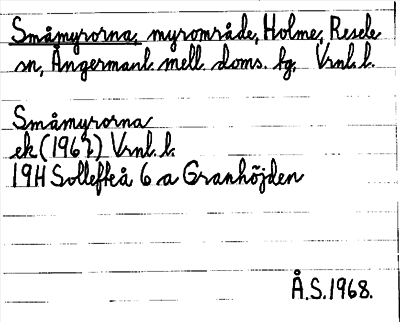 Småmyrorna, myrområde, Holme, Resele
sn, Ångermanl. mell. doms. fg. Vrnl. l.
Småmyrorna
ek (1967) Vrnl. l.
19H Sollefteå 6 a Granhöjden
Å.S. 1968.